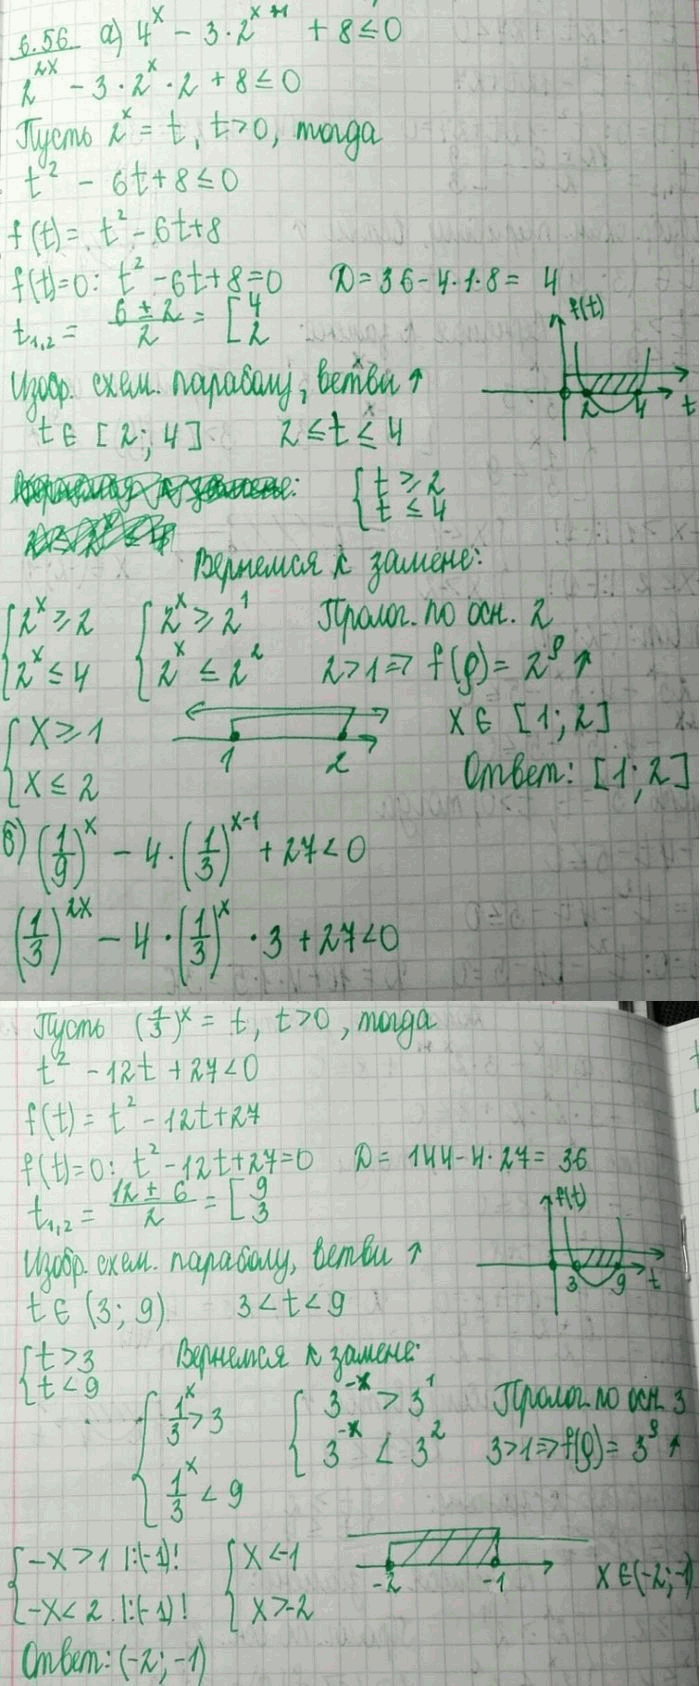 6.56 а) 4^x - 3·2^{x+1} + 8 ≤ 0
2^{2x} - 3·2^x·2 + 8 ≤ 0
Пусть 2^x = t, t>0, тогда
t² - 6t + 8 ≤ 0
f(t) = t² - 6t + 8
f(t)=0: t² - 6t + 8 = 0 D = 36 - 4·1·8 = 4
t_{1,2} = (6 ± 2)/2 = [4 2
f(t)
Изобр. схем. параболу, ветви ↑
2 4 t
t ∈ [2; 4] 2 ≤ t ≤ 4
{t ≥ 2
t ≤ 4
Вернемся к замене:
{2^x ≥ 2 {2^x ≥ 2^1 Пролог. по осн. 2
2^x ≤ 4 2^x ≤ 2^2 2>1 ⇒ f(g) = 2^g ↑
{x ≥ 1 x ∈ [1; 2]
x ≤ 2 1 2 Ответ: [1; 2]
б) (1/9)^x - 4·(1/3)^{x-1} + 27 < 0
(1/3)^{2x} - 4·(1/3)^x·3 + 27 < 0
Пусть (1/3)^x = t, t>0, тогда
t² - 12t + 27 < 0
f(t) = t² - 12t + 27
f(t)=0: t² - 12t + 27 = 0 D = 144 - 4·27 = 36
t_{1,2} = (12 ± 6)/2 = [9 3
f(t)
Изобр. схем. параболу, ветви ↑
3 9 t
t ∈ (3; 9) 3 < t < 9
{t > 3 Вернемся к замене:
t < 9
{1/3^x > 3 {3^{-x} > 3^1 Пролог. по осн. 3
1/3^x < 9 3^{-x} < 3^2 3>1 ⇒ f(g) = 3^g ↑
{-x > 1 |:(-1)! {x < -1
-x < 2 |:(-1)! x > -2 -2 -1 x ∈ (-2; -1)
Ответ: (-2; -1)